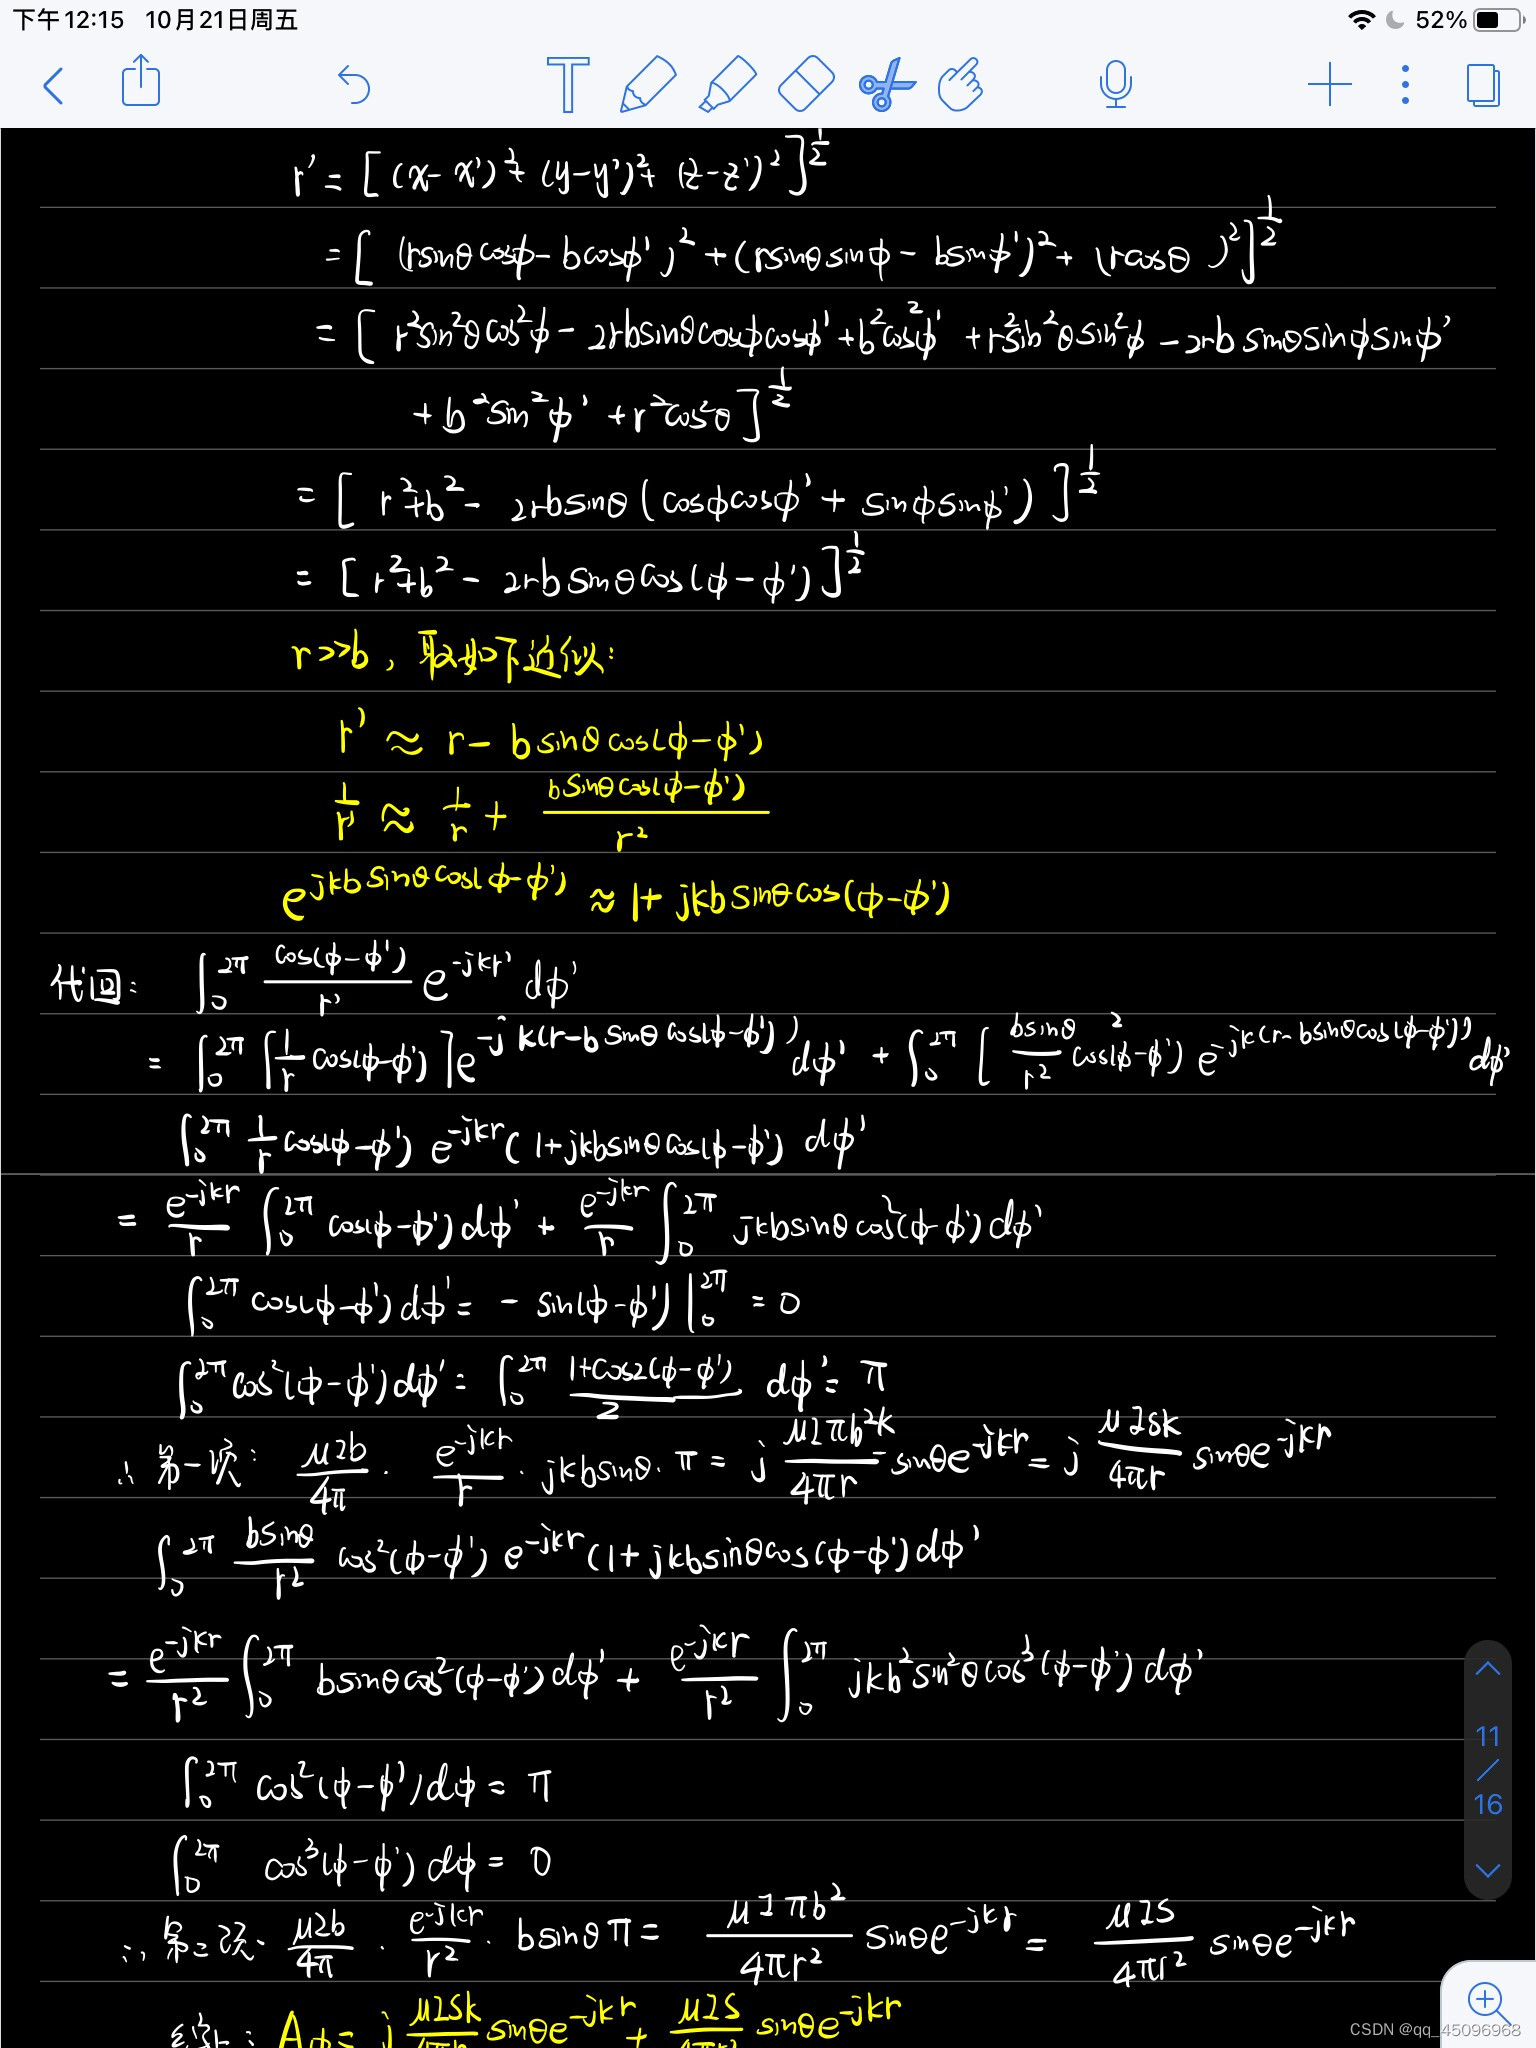 下午12:15 10月21日周五
52%
r' = [ (x-x')² + (y-y')² + (z-z')² ]^{1/2}
= [ (rsinθcosφ - bcosφ')² + (rsinθsinφ - bsinφ')² + (rcosθ )² ]^{1/2}
= [ r²sin²θcos²φ - 2rbsinθcosφcosφ' + b²cos²φ' + r²sin²θsin²φ - 2rbsinθsinφsinφ'
+ b²sin²φ' + r²cos²θ ]^{1/2}
= [ r²+b² - 2rbsinθ ( cosφcosφ' + sinφsinφ' ) ]^{1/2}
= [ r²+b² - 2rbsinθcos(φ-φ') ]^{1/2}
r>>b, 取如下近似:
r' ≈ r - bsinθcos(φ-φ')
1/r' ≈ 1/r + bsinθcos(φ-φ')/r²
e^{jkbsinθcos(φ-φ')} ≈ 1+ jkbsinθcos(φ-φ')
代回: ∫₀^{2π} cos(φ-φ')/r' e^{-jkr'} dφ'
= ∫₀^{2π} [1/r cos(φ-φ')] e^{-jk(r-bsinθcos(φ-φ'))} dφ' + ∫₀^{2π} [ bsinθ/r² cos²(φ-φ') e^{-jk(r-bsinθcos(φ-φ'))} dφ'
∫₀^{2π} 1/r cos(φ-φ') e^{-jkr} ( 1+jkbsinθcos(φ-φ') dφ'
= e^{-jkr}/r ∫₀^{2π} cos(φ-φ')dφ' + e^{-jkr}/r ∫₀^{2π} jkbsinθcos²(φ-φ')dφ'
∫₀^{2π} cos(φ-φ')dφ' = - sin(φ-φ') |₀^{2π} = 0
∫₀^{2π} cos²(φ-φ')dφ' = ∫₀^{2π} 1+cos2(φ-φ')/2 dφ' = π
∴ 第一项: μIb/4π · e^{-jkr}/r · jkbsinθ · π = j μIπb²k/4πr sinθe^{-jkr} = j μISk/4πr sinθe^{-jkr}
∫₀^{2π} bsinθ/r² cos²(φ-φ') e^{-jkr} (1+jkbsinθcos(φ-φ')dφ'
= e^{-jkr}/r² ∫₀^{2π} bsinθcos²(φ-φ')dφ' + e^{-jkr}/r² ∫₀^{2π} jkb²sin²θcos³(φ-φ')dφ'
∫₀^{2π} cos²(φ-φ')dφ = π
∫₀^{2π} cos³(φ-φ')dφ = 0
∴ 第二项: μIb/4π · e^{-jkr}/r² · bsinθπ = μIπb²/4πr² sinθe^{-jkr} = μIS/4πr² sinθe^{-jkr}
: Aφ = j μISk/4πr sinθe^{-jkr} + μIS/4πr² sinθe^{-jkr}
11
/
16
CSDN @qq_45096968